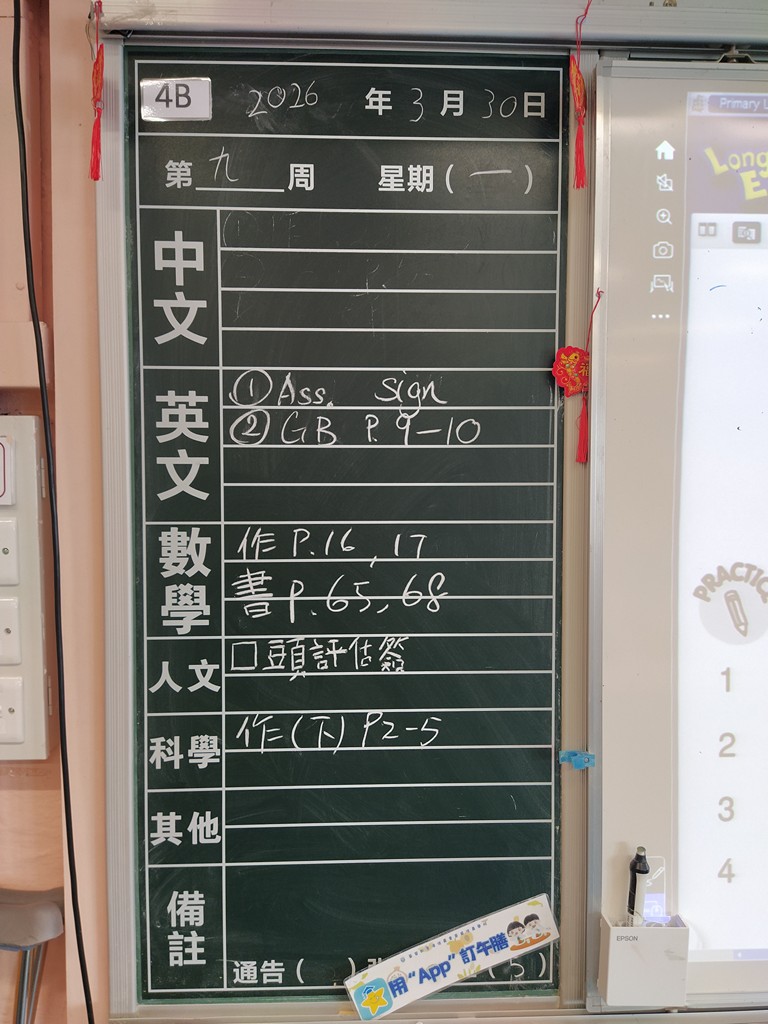 4B 2026 年 3 月 30 日
第 九 周 星期 ( 一 )
中文
英文
① Ass. sign
② GB P. 9-10
數學
作 P.16, 17
書 P. 65, 68
人文
口頭評估簽
科學
作(下) P2-5
其他
備註
通告 (
( 5 )
用“App”訂午膳
Primary
PRACTICE
1
2
3
4
EPSON